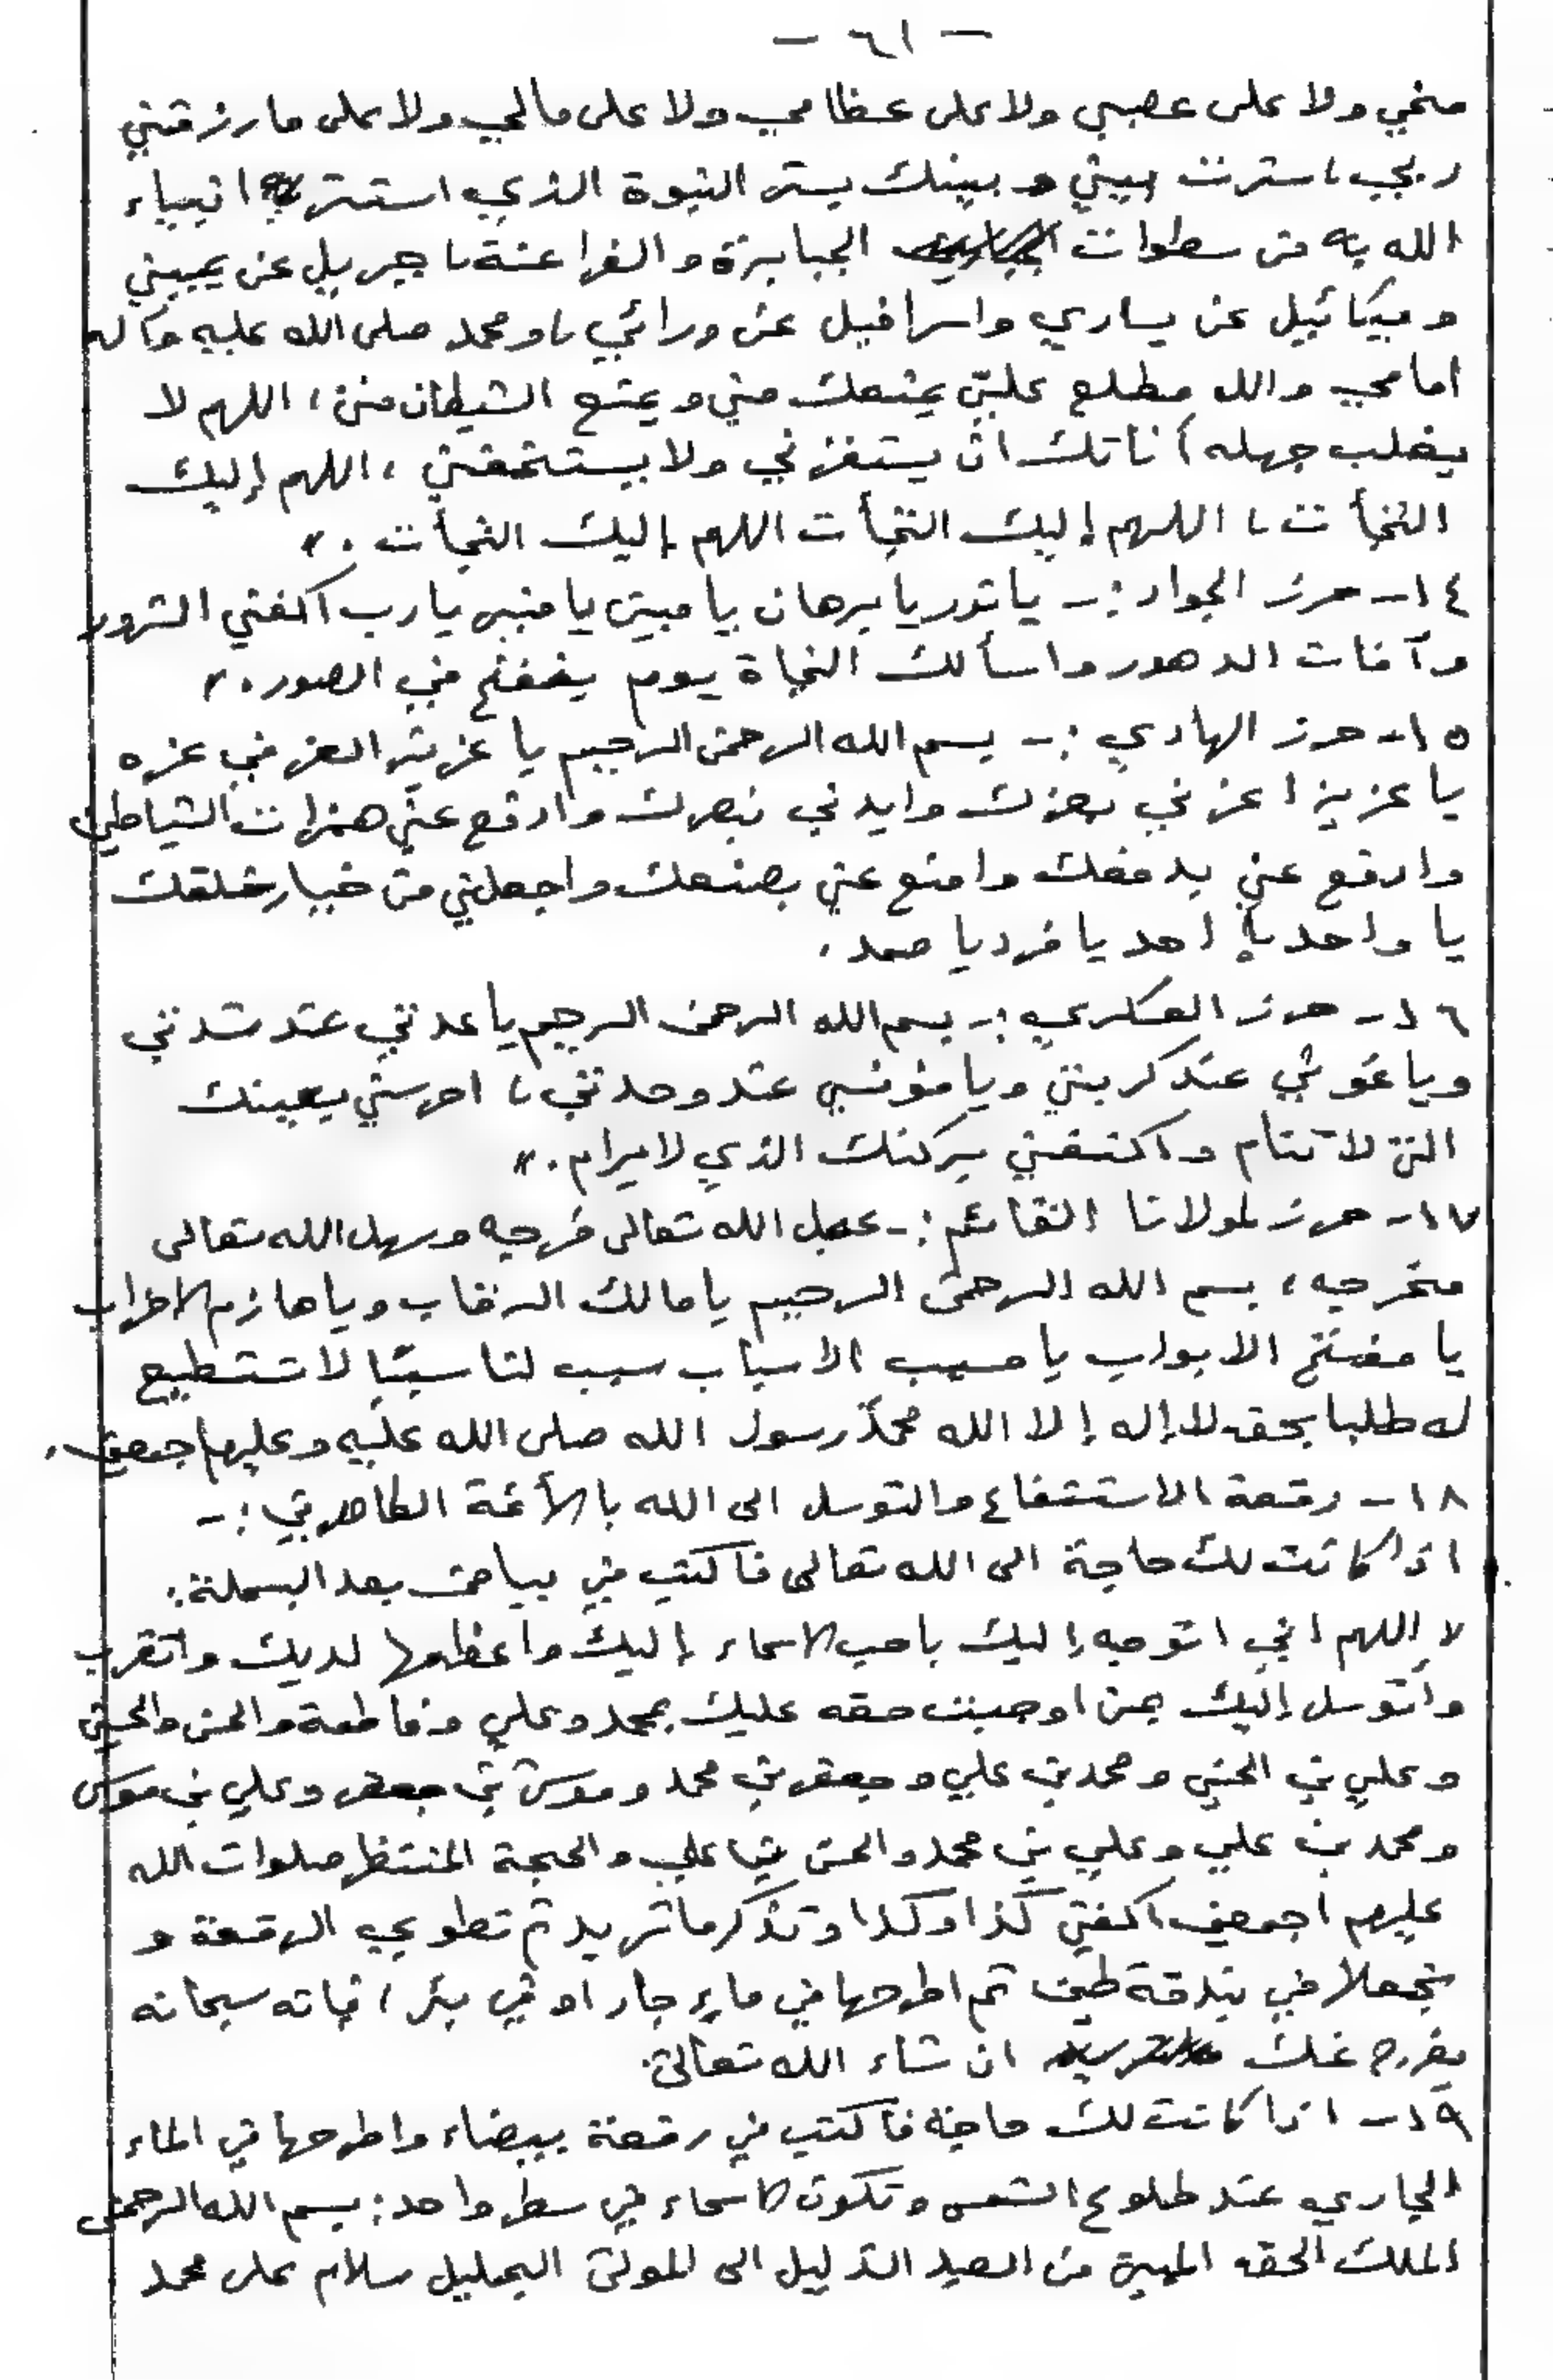 - ٦١ -
مخي ولا على عصبي ولا على عظامي ولا على مالي ولا على ما رزقني
ربي، سترت بيني وبينك بستر النبوة الذي استتر به انبياء
الله به من سطوات الجبابرة والفراعنة، جبريل عن يميني
وميكائيل عن يساري واسرافيل عن ورائي، ومحمد صلى الله عليه وآله
امامي والله مطلع عليّ يمنعك مني ويمنع الشيطان مني، اللهم لا
يغلب جهله أناتك ان يستفزني ولا يستخفني، اللهم إليك
التجأت، اللهم إليك التجأت اللهم إليك التجأت . "
١٤- حرز الجواد :- يا نور يا برهان يا مبين يا منير يا رب اكفني الشرور
وآفات الدهور واسألك النجاة يوم ينفخ في الصور . "
١٥- حرز الهادي :- بسم الله الرحمن الرحيم يا عزيز العز في عزه
يا عزيز اعزني بعزك وايدني بنصرك وادفع عني همزات الشياطين
وادفع عني بدفعك وامنع عني بصنعك واجعلني من خيار خلقك
يا واحد يا احد يا فرد يا صمد .
١٦- حرز العسكري :- بسم الله الرحمن الرحيم يا عدتي عند شدتي
ويا غوثي عند كربتي ويا مؤنسي عند وحدتي، احرسني بعينك
التي لا تنام واكنفني بركنك الذي لا يرام . "
١٧- حرز لمولانا القائم :- عجل الله تعالى فرجه وسهل الله تعالى
مخرجه، بسم الله الرحمن الرحيم يا مالك الرقاب ويا هازم الاحزاب
يا مفتح الابواب يا مسبب الاسباب سبب لنا سببًا لا نستطيع
له طلبا بحق لا إله إلا الله محمد رسول الله صلى الله عليه وعليهم اجمعين .
١٨- رقعة الاستشفاع والتوسل الى الله بالأئمة الطاهرين :-
اذا كانت لك حاجة الى الله تعالى فاكتب في بياض بعد البسملة :
" اللهم اني اتوجه إليك باحب الاسماء إليك واعظمها لديك واتقرب
وأتوسل إليك بمن اوجبت حقه عليك بمحمد وعلي وفاطمة والحسن والحسين
وعلي بن الحسين ومحمد بن علي وجعفر بن محمد وموسى بن جعفر وعلي بن موسى
ومحمد بن علي وعلي بن محمد والحسن بن علي والحجة المنتظر صلوات الله
عليهم اجمعين اكفني كذا وكذا وتذكر ما تريد ثم تطوي الرقعة و
تجعلها في بندقة طين ثم اطرحها في ماءٍ جار او في بئر، فإنه سبحانه
يفرج عنك ان شاء الله تعالى .
١٩- اذا كانت لك حاجة فاكتب في رقعة بيضاء واطرحها في الماء
الجاري عند طلوع الشمس وتكون الاسماء في سطر واحد : بسم الله الرحمن
الملك الحق المبين من العبد الذليل الى المولى الجليل سلام على محمد